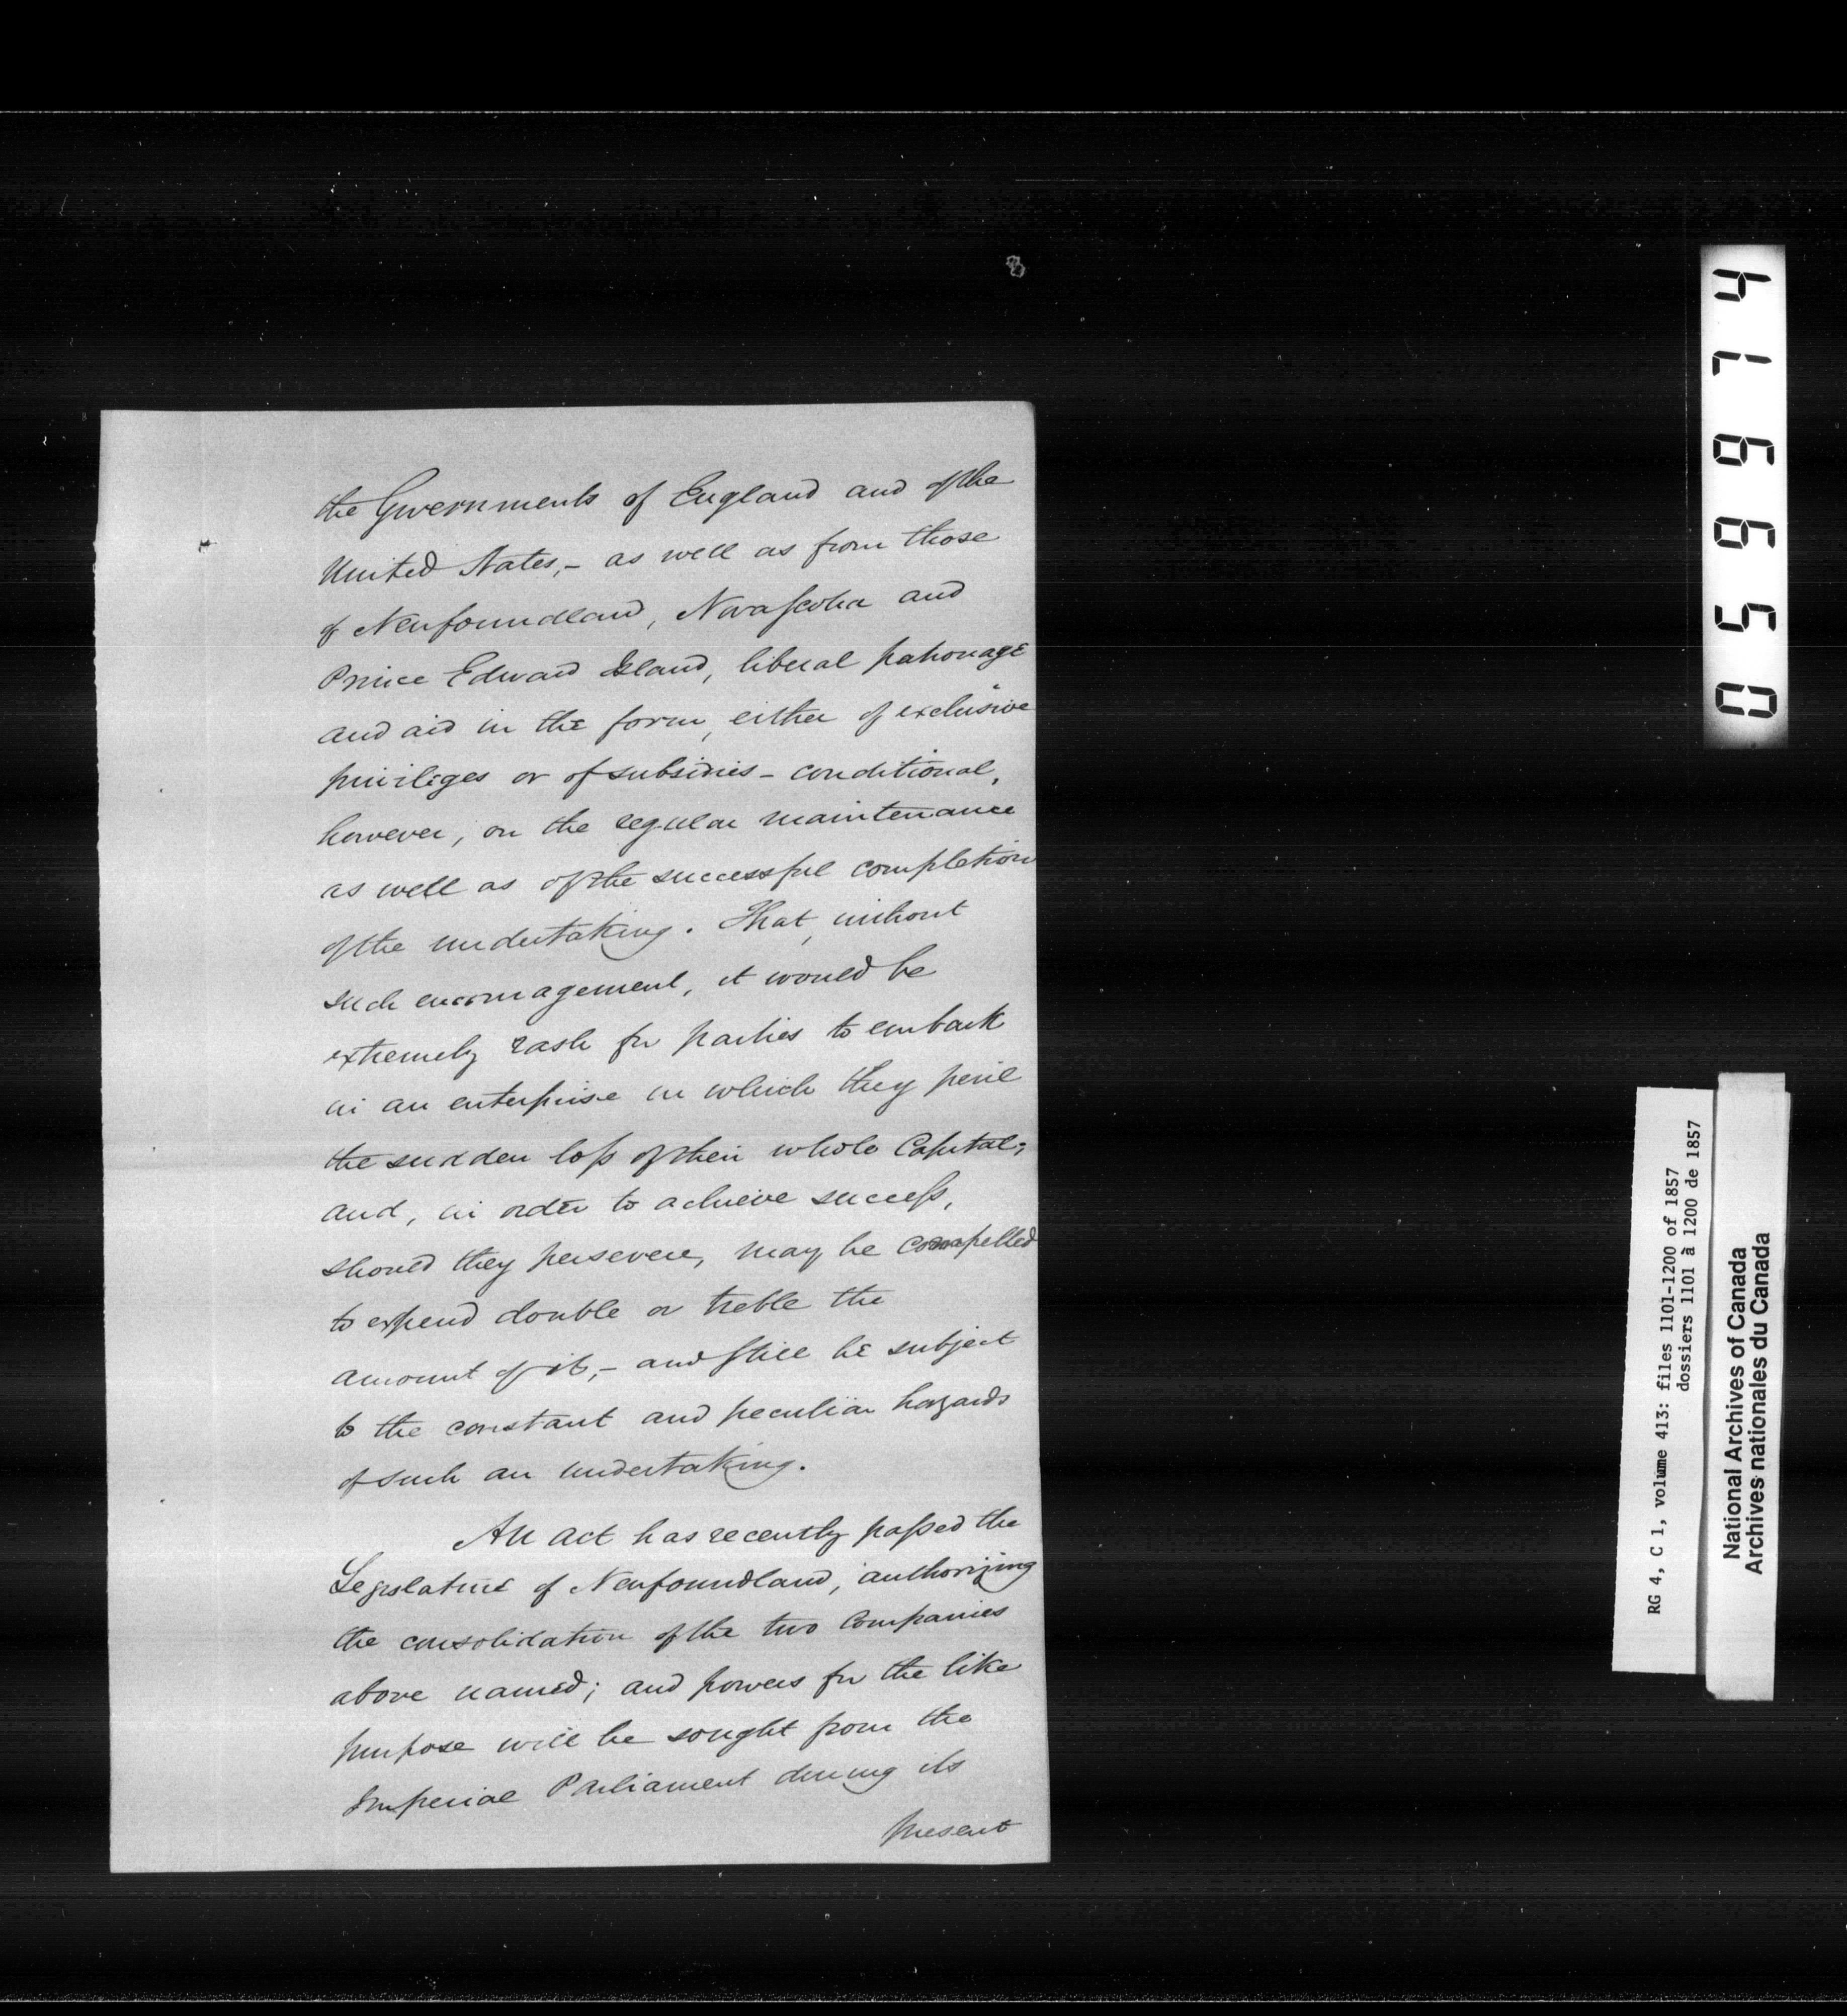 the Governments of England and of the
United States,- as well as from those
of Newfoundland, Nova Scotia and
Prince Edward Island, liberal patronage
and aid in the form, either of exclusive
privileges or of subsidies - conditional,
however, on the regular maintenance
as well as of the successful completion
of the undertaking. That, without
such encouragement, it would be
extremely rash for parties to embark
in an enterprise in which they peril
the sudden loss of their whole Capital;
and, in order to achieve success,
should they persevere, may be compelled
to expend double or treble the
amount of it,- and still be subject
to the constant and peculiar hazards
of such an undertaking.
An act has recently passed the
Legislature of Newfoundland, authorizing
the consolidation of the two Companies
above named; and powers for the like
purpose will be sought from the
Imperial Parliament during its
present
056614
RG 4, C 1, volume 413: files 1101-1200 of 1857
dossiers 1101 à 1200 de 1857
National Archives of Canada
Archives nationales du Canada